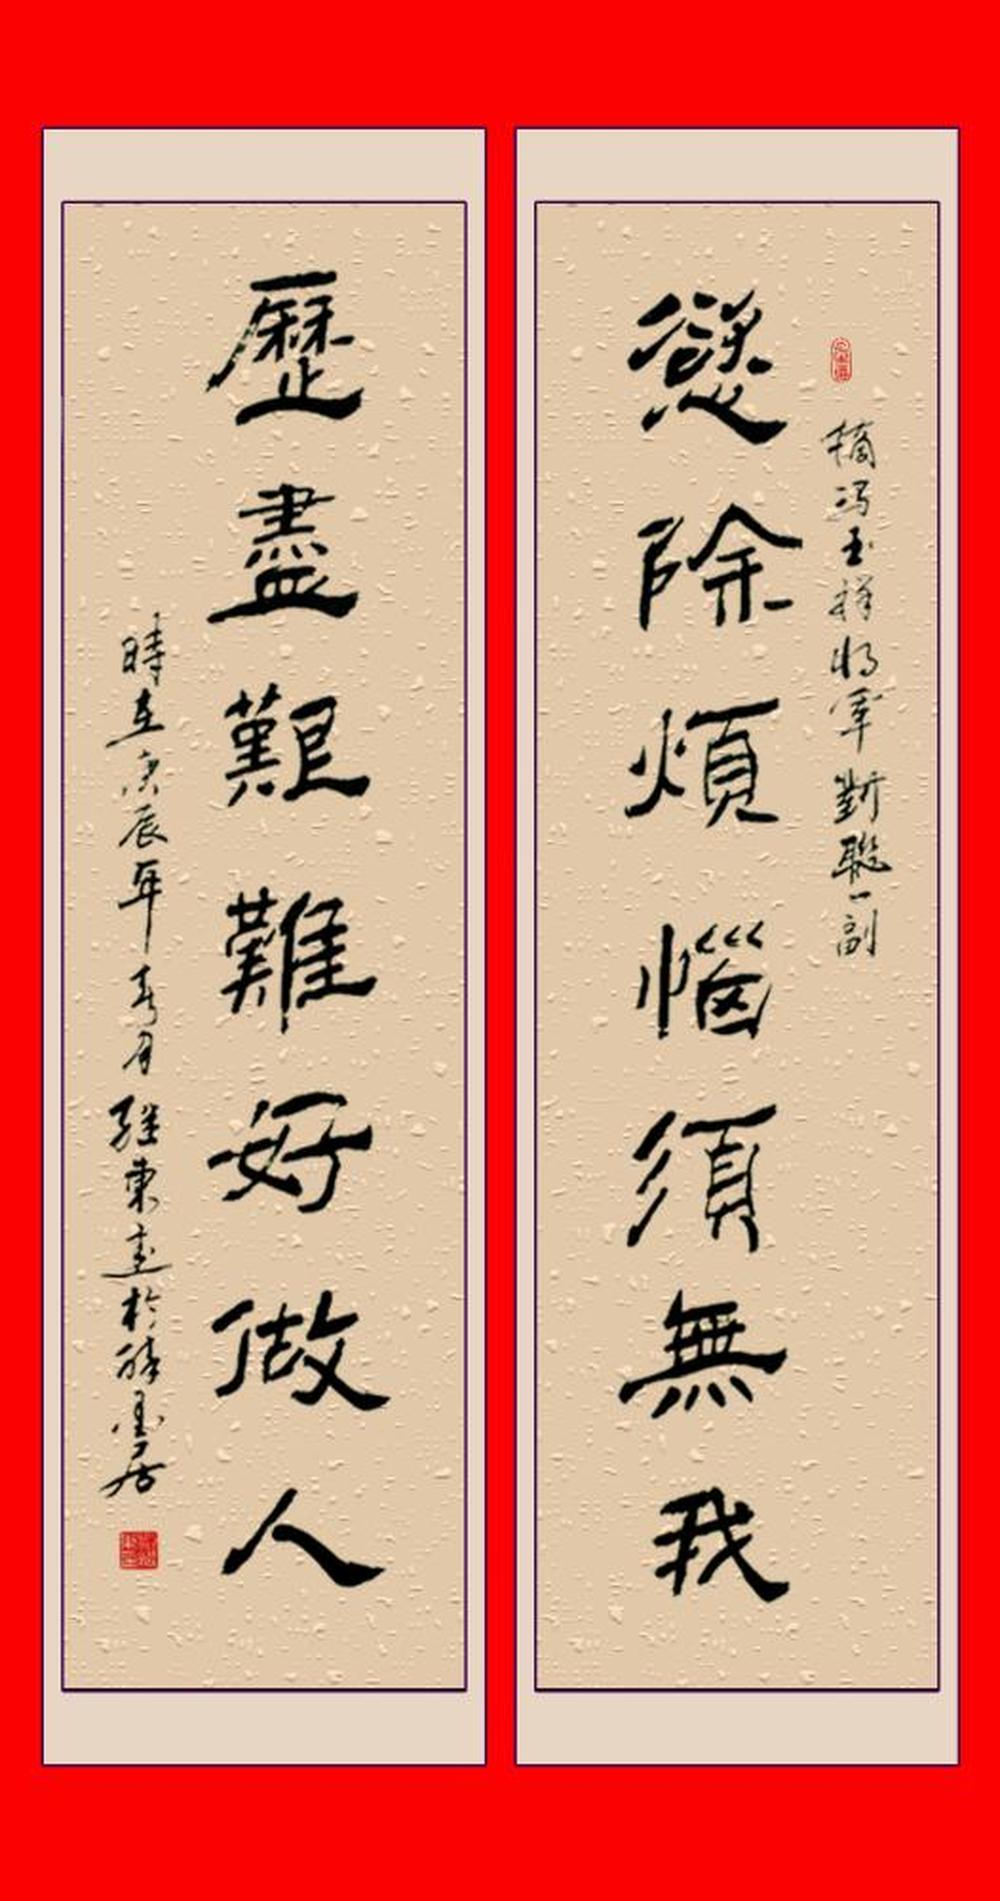 摘冯玉祥将軍對聯一副
慾除煩惱須無我
歷盡艱難好做人
時在庚辰年春月继東書於醉墨居